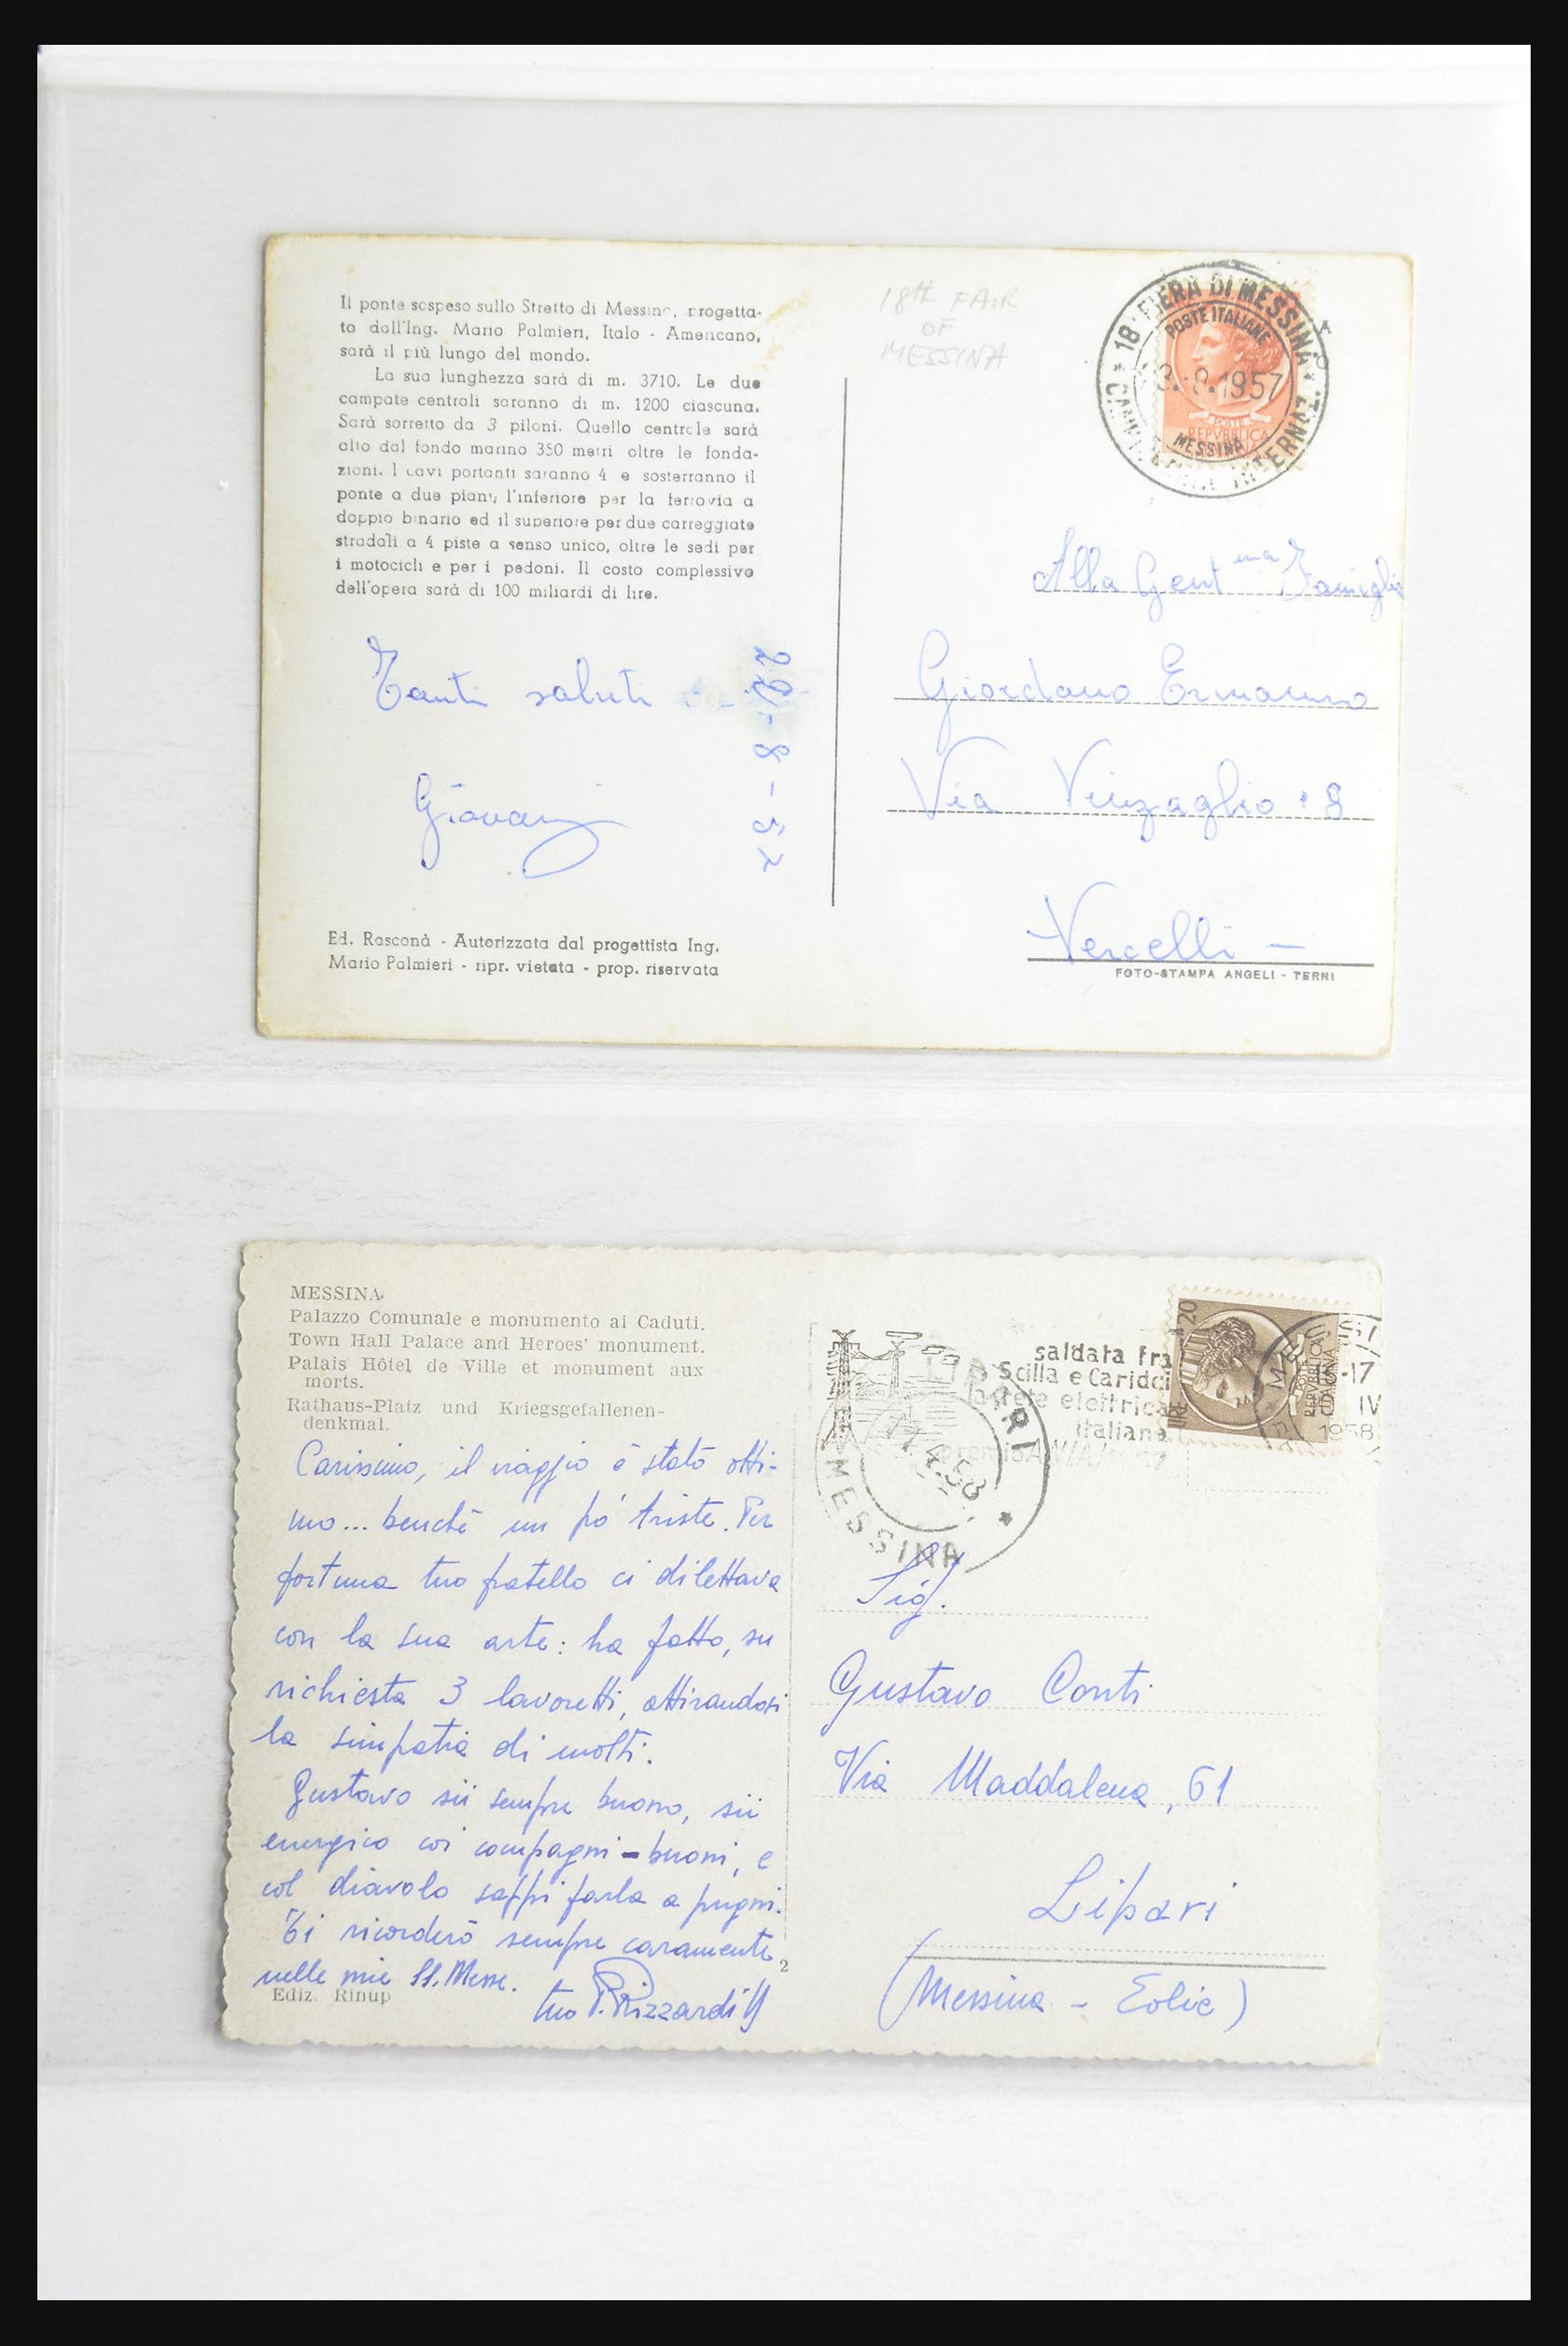 Il ponte sospeso sullo Stretto di Messina, progetta-
to dall'Ing. Mario Palmieri, Italo - Americano,
sarà il più lungo del mondo.
La sua lunghezza sarà di m. 3710. Le due
campate centrali saranno di m. 1200 ciascuna.
Sarà sorretto da 3 piloni. Quello centrale sarà
alto dal fondo marino 350 metri oltre le fonda-
zioni. I cavi portanti saranno 4 e sosterranno il
ponte a due piani; l'inferiore per la ferrovia a
doppio binario ed il superiore per due carreggiate
stradali a 4 piste a senso unico, oltre le sedi per
i motocicli e per i pedoni. Il costo complessivo
dell'opera sarà di 100 miliardi di lire.
Tanti saluti
Giovanni
22-8-57
Ed. Rasconà - Autorizzata dal progettista Ing.
Mario Palmieri - ripr. vietata - prop. riservata
18th FAIR
OF
MESSINA
18ª FIERA DI MESSINA
POSTE ITALIANE
8.1957
MESSINA
INTERNAZ.
REPVBBLICA
Alla Gent ma Famiglia
Giordano Ermanno
Via Vinzaglio 8
Vercelli -
FOTO-STAMPA ANGELI - TERNI
MESSINA
Palazzo Comunale e monumento ai Caduti.
Town Hall Palace and Heroes' monument.
Palais Hôtel de Ville et monument aux
morts.
Rathaus-Platz und Kriegsgefallenen-
denkmal.
Carissimo, il viaggio è stato otti-
mo... benché un pó triste. Per
fortuna tuo fratello ci dilettava
con la sua arte: ha fatto, su
richiesta 3 lavoretti, attirandosi
la simpatia di molti.
Gustavo sii sempre buono, sii
energico coi compagni-buoni, e
col diavolo sappi farla a pugni.
Ti ricorderò sempre caramente
nelle mie SS. Messe.
tuo P. Rizzardi
Ediz. Rinup
2
saldata fra
Scilla e Cariddi
la rete elettrica
italiana
LIPARI
4.58
MESSINA
LIRE 20
POSTE
REPVBBLICA
ITALIANA
16-17
IV
1958
Sig.
Gustavo Conti
Via Maddalena, 61
Lipari
(Messina - Eolie)